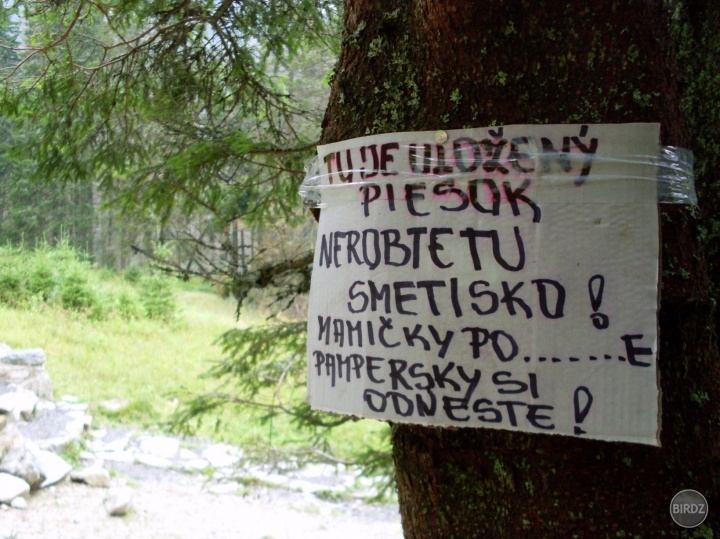 TU JE ULOŽENÝ
PIESOK
NEROBTE TU
SMETISKO!
MAMIČKY PO........E
PAMPERSKY SI
ODNESTE!
BIRDZ